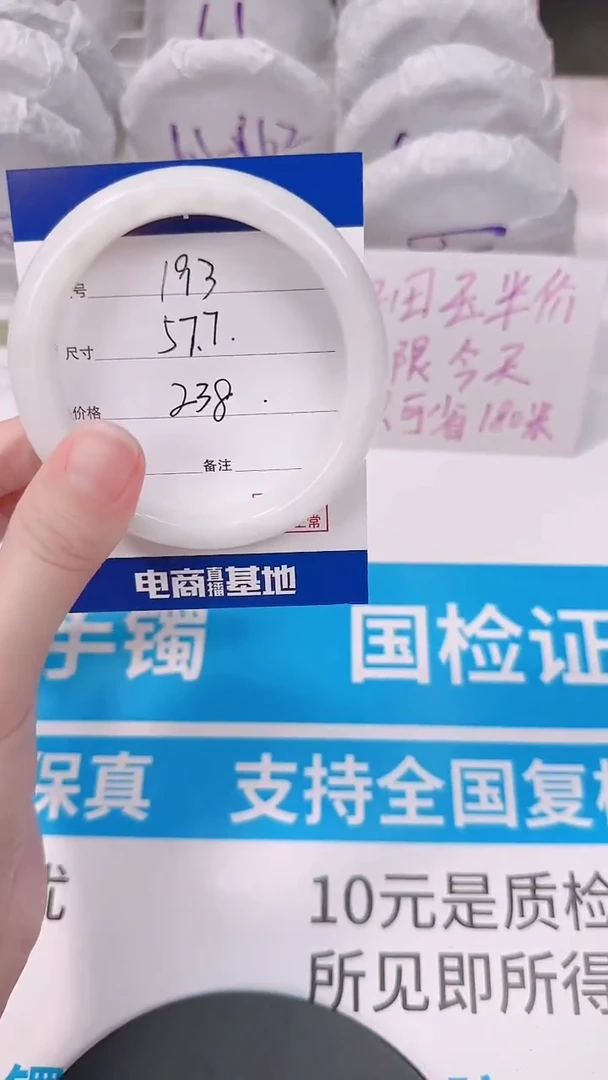 61
61-62
号 193
尺寸 57.7.
价格 238.
备注
常
电商直播基地
田玉半价
限今天
可省180米
手镯 国检证
保真 支持全国复检
优 10元是质检
所见即所得